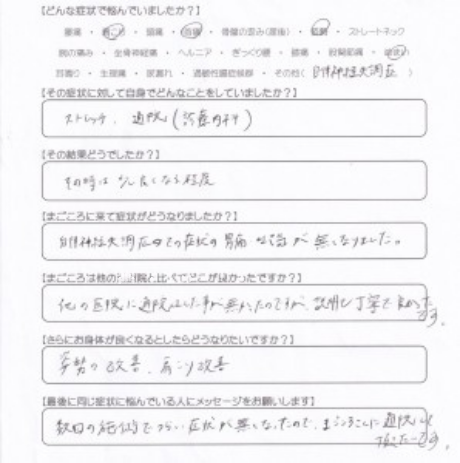 【どんな症状で悩んでいましたか？】
腰痛 ・ 肩こり ・ 頭痛 ・ 背痛 ・ 骨盤の歪み(産後) ・ 猫背 ・ ストレートネック
腕の痛み ・ 坐骨神経痛 ・ ヘルニア ・ ぎっくり腰 ・ 膝痛 ・ 股関節痛 ・ めまい
耳鳴り ・ 生理痛 ・ 尿漏れ ・ 過敏性腸症候群 ・ その他( 自律神経失調症 )
【その症状に対して自身でどんなことをしていましたか？】
ストレッチ、通院(治療内科)
【その結果どうでしたか？】
その時は少し良くなる程度
【まごころに来て症状がどうなりましたか？】
自律神経失調症での症状の胃痛 吐気が無くなりました。
【まごころは他の 院と比べてどこが良かったですか？】
他の医院に通院した事が無かったのですが、説明も丁寧で良かったです。
【さらにお身体が良くなるとしたらどうなりたいですか？】
姿勢の改善、肩こり改善
【最後に同じ症状に悩んでいる人にメッセージをお願いします】
数回の施術でつらい症状が無くなったので、まごころさんに通院して
です。